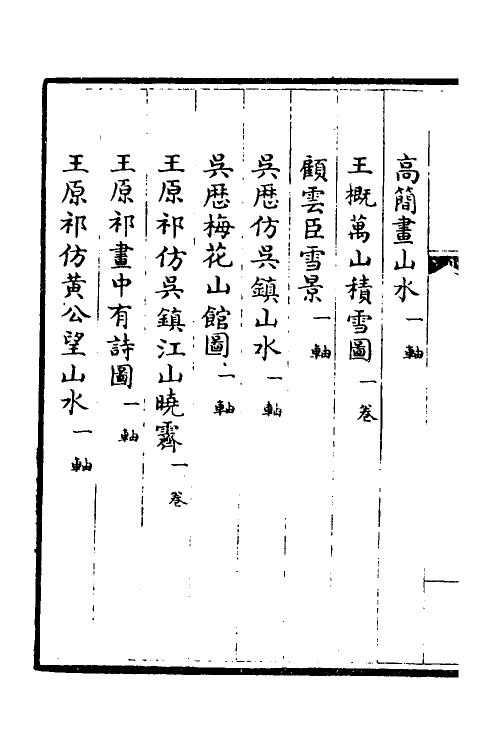 高簡畫山水一軸
王概萬山積雪圖一卷
顧雲臣雪景一軸
吳歷仿吳鎮山水一軸
吳歷梅花山館圖一軸
王原祁仿吳鎮江山曉霽一卷
王原祁畫中有詩圖一軸
王原祁仿黃公望山水一軸